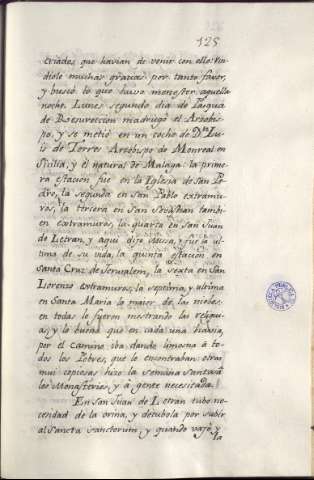 125
criados que havian de venir con ello: rin
diole muchas gracias por tanto favor,
y buscó lo que huvo menester aquella
noche. Lunes segundo dia de Pasqua
de Resureccion madrugó el Arzobis
po, y se metió en un coche de Dn. Lu
is de Torres Arzobispo de Monreal en
Sicilia, y él natural de Malaga: la prime
ra estacion fue en la Iglesia de San Pe
dro, la segunda en San Pablo extramu
ros, la tercera en San Sevastian tambi
en extramuros, la quarta en San Juan
de Letran, y aqui dijo Missa, y fue la ul
tima de su vida, la quinta estacion en
Santa Cruz de Jerusalem, la sexta en San
Lorenzo extramuros, la septima, y ultima
en Santa Maria la maior de las nieves:
en todas le fueron mostrando las reliqui
as, y lo bueno que en cada una havia,
por el camino iba dando limosna á to
dos los Pobres, que le encontraban: otras
mui copiosas hizo la semana santa á
los Monasterios, y á gente necesitada.
En San Juan de Letran tubo ne
cesidad de la orina, y detubola por subir
al Sancta Sanctorum, y quando vajó y
la